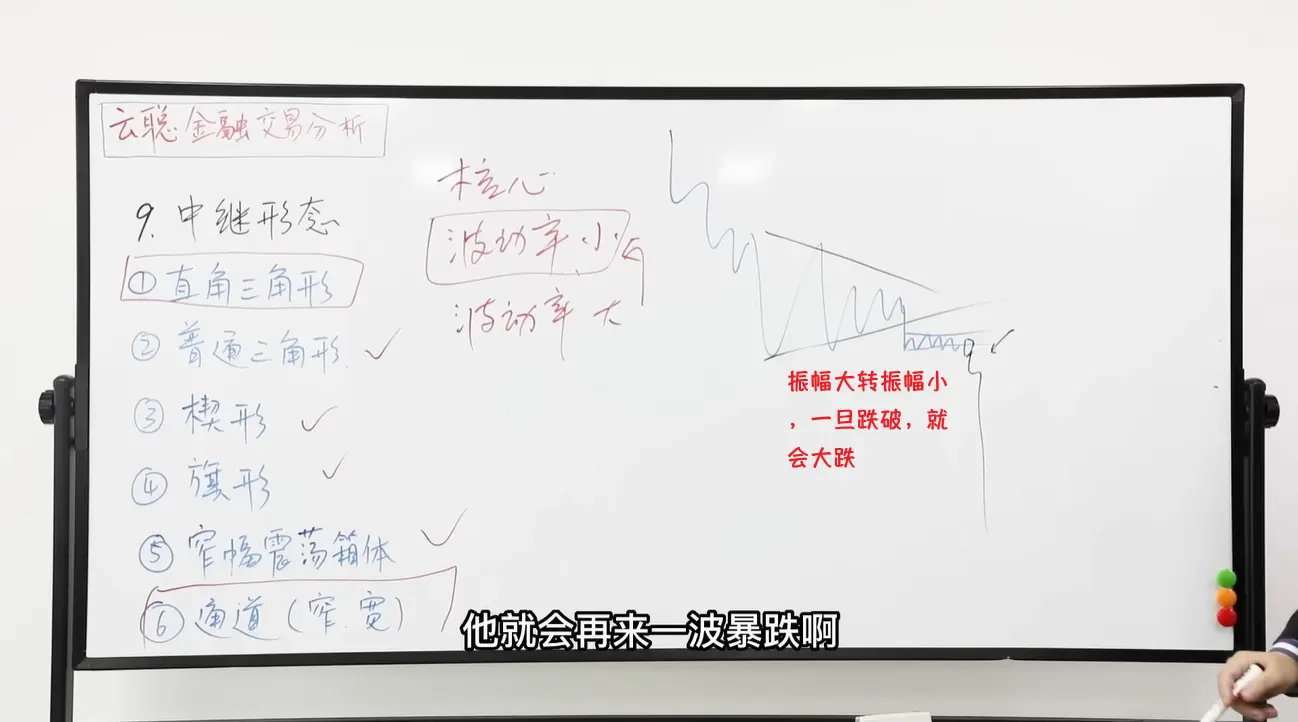 云聪金融交易分析
9. 中继形态
① 直角三角形
② 普通三角形
③ 楔形
④ 旗形
⑤ 窄幅震荡箱体
⑥ 通道（窄.宽）
核心
波动率小
波动率大
振幅大转振幅小
，一旦跌破，就
会大跌
他就会再来一波暴跌啊